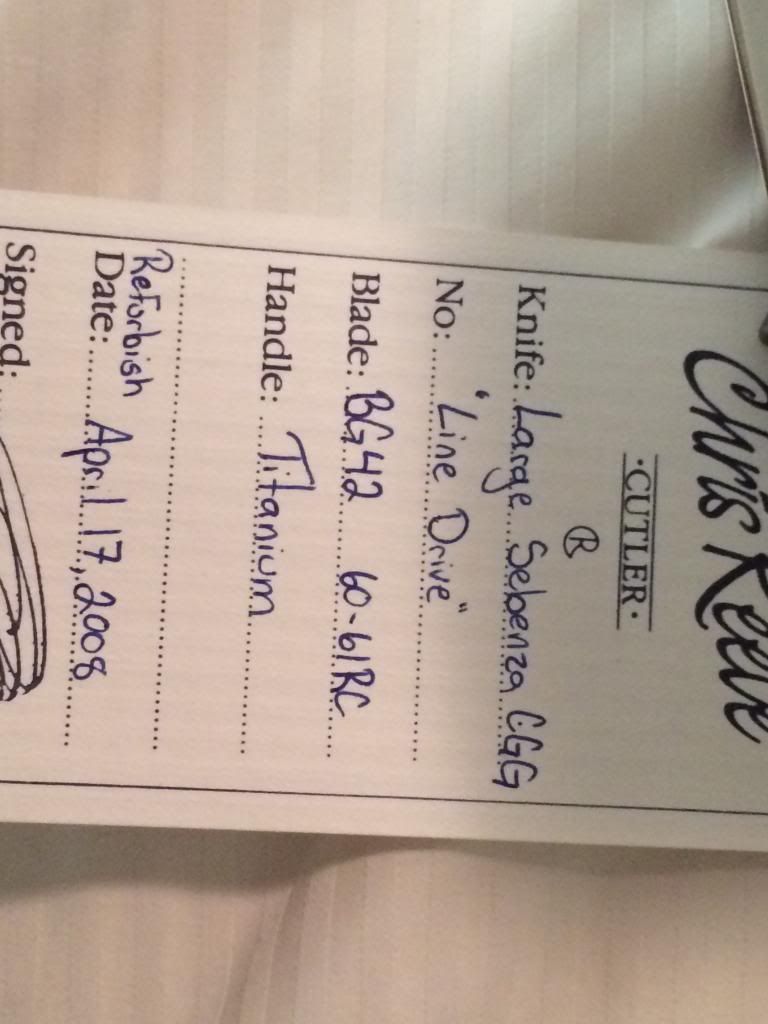 Chris Reeve
·CUTLER·
®
Knife: Large Sebenza CGG
No: "Line Drive"
Blade: BG42 60-61RC
Handle: Titanium
Refurbish
Date: April 17, 2008
Signed: